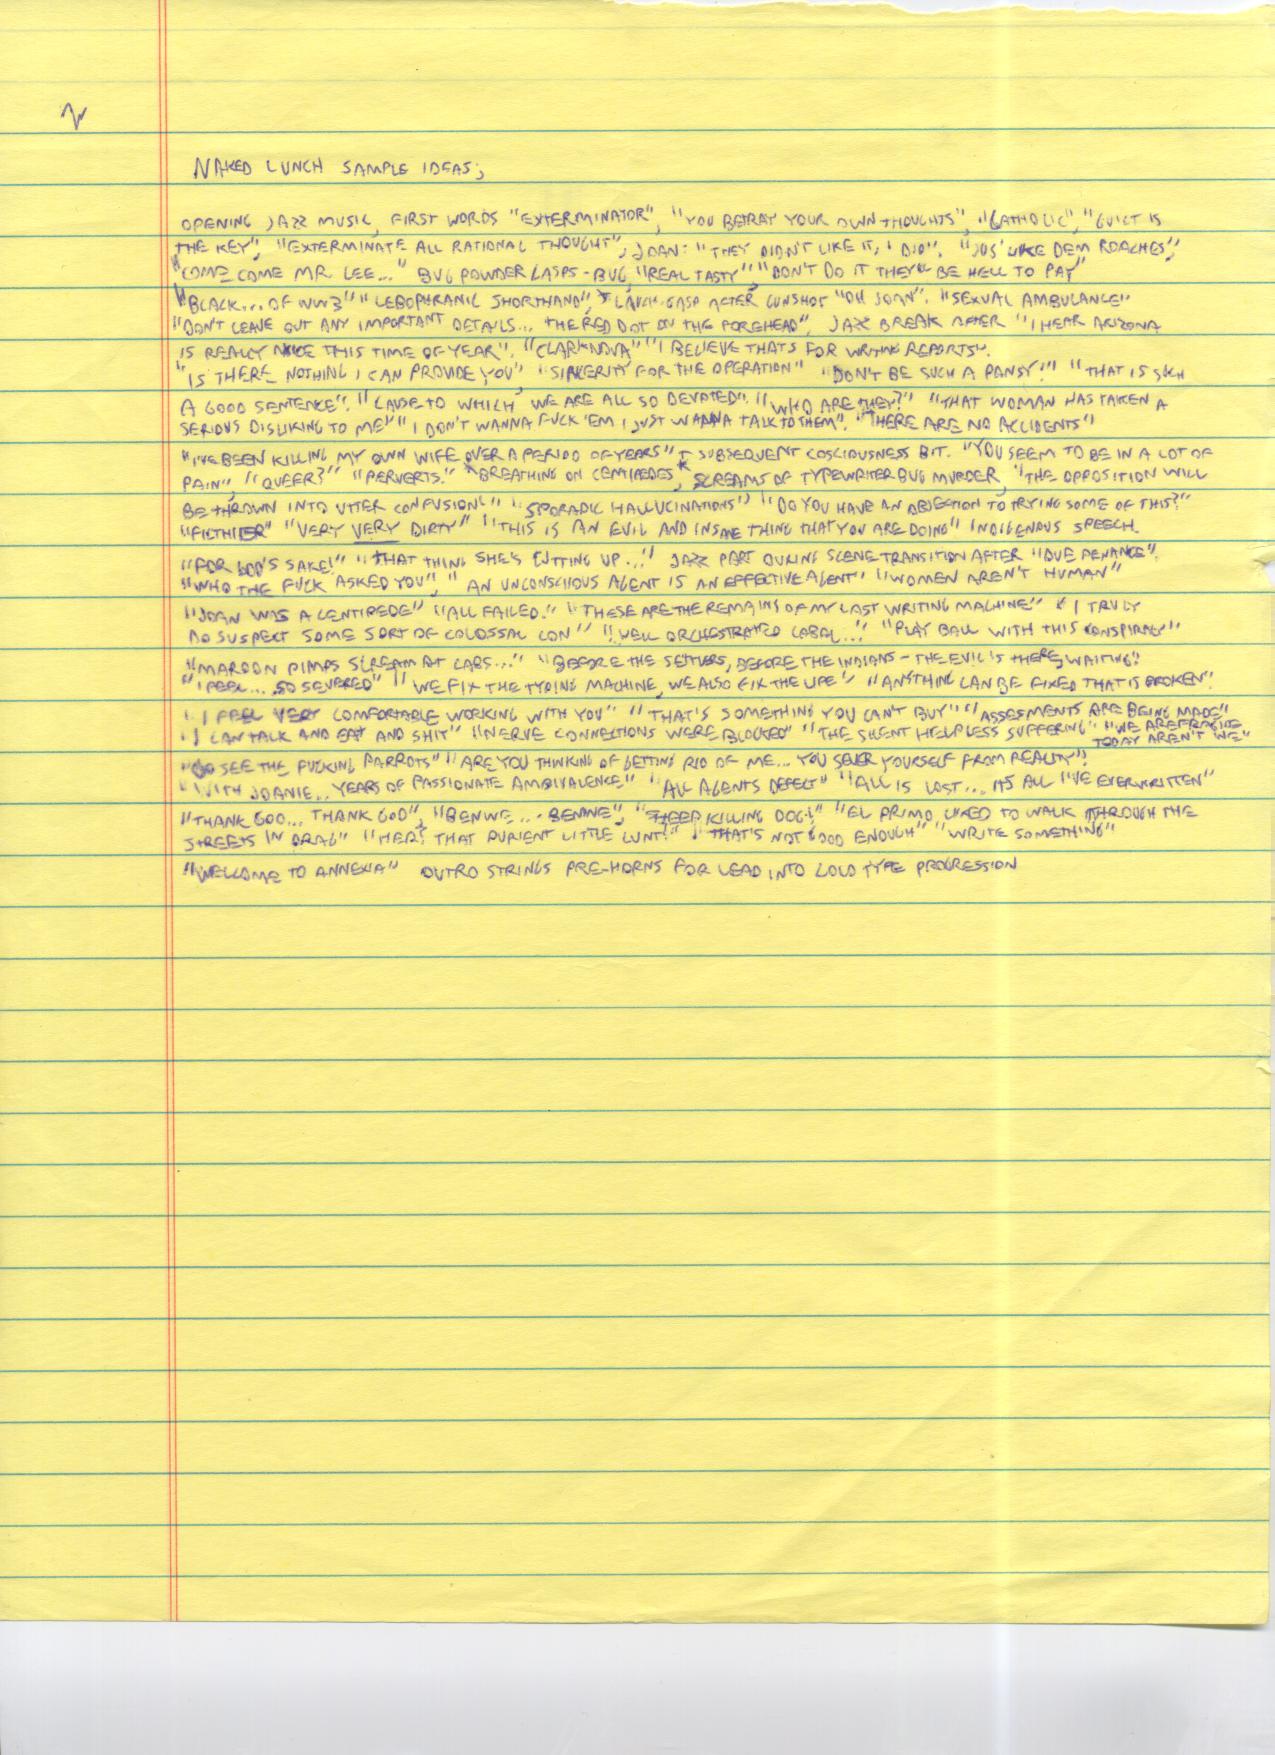 NAKED LUNCH SAMPLE IDEAS;
OPENING JAZZ MUSIC, FIRST WORDS "EXTERMINATOR", "YOU BETRAY YOUR OWN THOUGHTS", "CATHOLIC", "GUILT IS
THE KEY", "EXTERMINATE ALL RATIONAL THOUGHT", JOAN: "THEY DIDN'T LIKE IT, I DID". "JUS' LIKE DEM ROACHES",
"COME COME MR LEE..." BUG POWDER GASPS - BUG, "REAL TASTY", "DON'T DO IT THEY'LL BE HELL TO PAY"
"BLACK... OF WW3" "LEBOPHRANIC SHORTHAND", LAUGH-GASP AFTER GUNSHOT "OH JOAN". "SEXUAL AMBULANCE"
"DON'T LEAVE OUT ANY IMPORTANT DETAILS... THE RED DOT ON THE FOREHEAD", JAZZ BREAK AFTER "I HEAR ARIZONA
IS REALLY NICE THIS TIME OF YEAR". "CLARK NOVA" "I BELIEVE THATS FOR WRITING REPORTS".
"IS THERE NOTHING I CAN PROVIDE YOU", "SINCERITY FOR THE OPERATION" "DON'T BE SUCH A PANSY!" "THAT IS SUCH
A GOOD SENTENCE". "CAUSE TO WHICH WE ARE ALL SO DEVOTED". "WHO ARE THEY?" "THAT WOMAN HAS TAKEN A
SERIOUS DISLIKING TO ME" "I DON'T WANNA FUCK 'EM I JUST WANNA TALK TO THEM". "THERE ARE NO ACCIDENTS"
"I'VE BEEN KILLING MY OWN WIFE OVER A PERIOD OF YEARS" + SUBSEQUENT COSCIOUSNESS BIT. "YOU SEEM TO BE IN A LOT OF
PAIN", "QUEER?" "PERVERTS." *BREATHING ON CEMIPEDES*, SCREAMS OF TYPEWRITER BUG MURDER, "THE OPPOSITION WILL
BE THROWN INTO UTTER CONFUSION" "SPORADIC HALLUCINATIONS" "DO YOU HAVE AN OBJECTION TO TRYING SOME OF THIS?"
"FILTHIER" "VERY VERY DIRTY" "THIS IS AN EVIL AND INSANE THING THAT YOU ARE DOING" INDIGENOUS SPEECH.
"FOR GOD'S SAKE!" "THAT THING SHE'S CUTTING UP..!" JAZZ PART DURING SCENE TRANSITION AFTER "DUE PENANCE".
"WHO THE FUCK ASKED YOU", "AN UNCONSCIOUS AGENT IS AN EFFECTIVE AGENT" "WOMEN AREN'T HUMAN"
"JOAN WAS A CENTIPEDE" "ALL FAILED." "THESE ARE THE REMAINS OF MY LAST WRITING MACHINE" "I TRULY
DO SUSPECT SOME SORT OF COLOSSAL CON" "WELL ORCHESTRATED CABAL..." "PLAY BALL WITH THIS CONSPIRACY"
"MAROON PIMPS SCREAM AT CABS..." "BEFORE THE SETTLERS, BEFORE THE INDIANS - THE EVIL'S THERE, WAITING"
"I FEEL... SO SEVERED" "WE FIX THE TYPING MACHINE, WE ALSO FIX THE LIFE" "ANYTHING CAN BE FIXED THAT IS BROKEN".
"I FEEL VERY COMFORTABLE WORKING WITH YOU" "THAT'S SOMETHING YOU CAN'T BUY" "ASSESMENTS ARE BEING MADE"
"I CAN TALK AND EAT AND SHIT" "NERVE CONNECTIONS WERE BLOCKED" "THE SILENT HELPLESS SUFFERING" "WE ARE FRAGILE
TODAY AREN'T WE"
"GO SEE THE FUCKING PARROTS" "ARE YOU THINKING OF GETTING RID OF ME... YOU SEVER YOURSELF FROM REALITY"
"WITH JOANIE... YEARS OF PASSIONATE AMBIVALENCE" "ALL AGENTS DEFECT" "ALL IS LOST... IT'S ALL I'VE EVER WRITTEN"
"THANK GOD... THANK GOD", "BENWE... BENWE", "SHEEP KILLING DOG!" "EL PRIMO LIKED TO WALK THROUGH THE
STREETS IN DRAG" "HER? THAT PURIENT LITTLE CUNT?" "THAT'S NOT GOOD ENOUGH" "WRITE SOMETHING"
"WELCOME TO ANNEXIA" OUTRO STRINGS PRE-HORNS FOR LEAD INTO COLD TYPE PROGRESSION